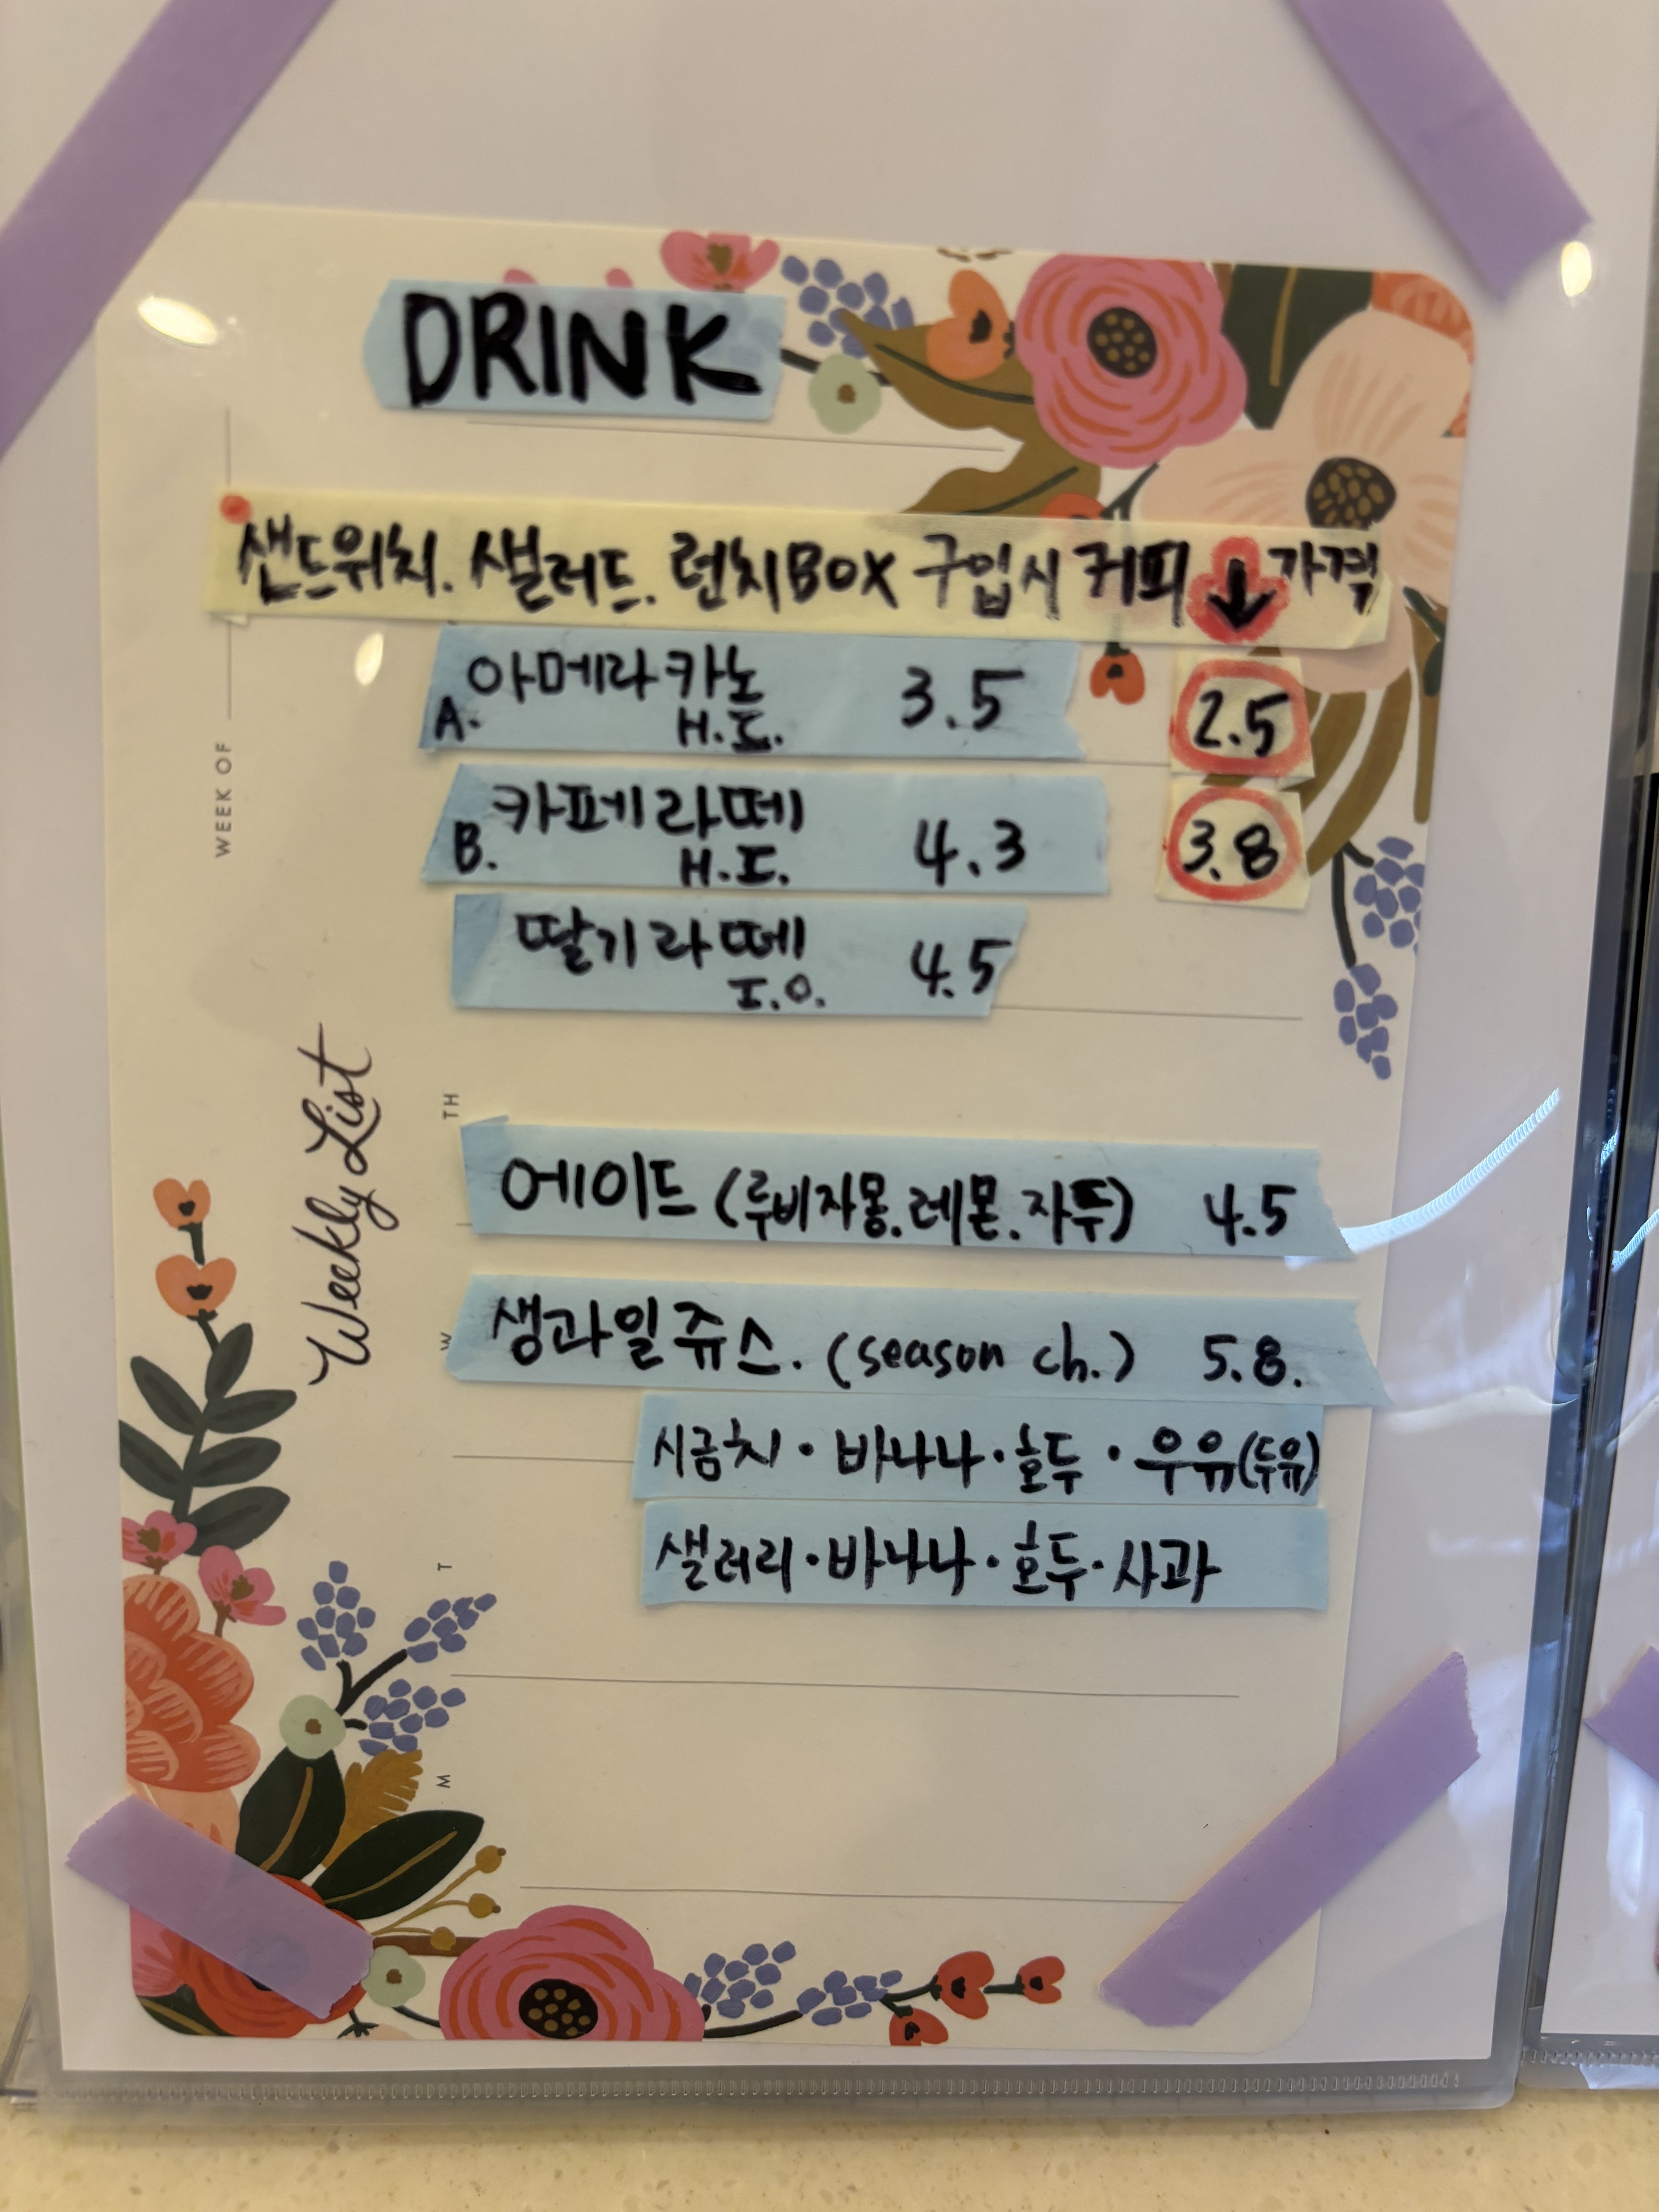 DRINK
샌드위치. 샐러드. 런치BOX 구입시 커피 ↓ 가격
A. 아메라카노 H.I. 3.5 2.5
B. 카페라떼 H.I. 4.3 3.8
딸기라떼 I.O. 4.5
에이드 (루비자몽.레몬.자두) 4.5
생과일쥬스. (season ch.) 5.8.
시금치·바나나·호두·우유(두유)
샐러리·바나나·호두·사과
WEEK OF
Weekly List
TH
W
T
M